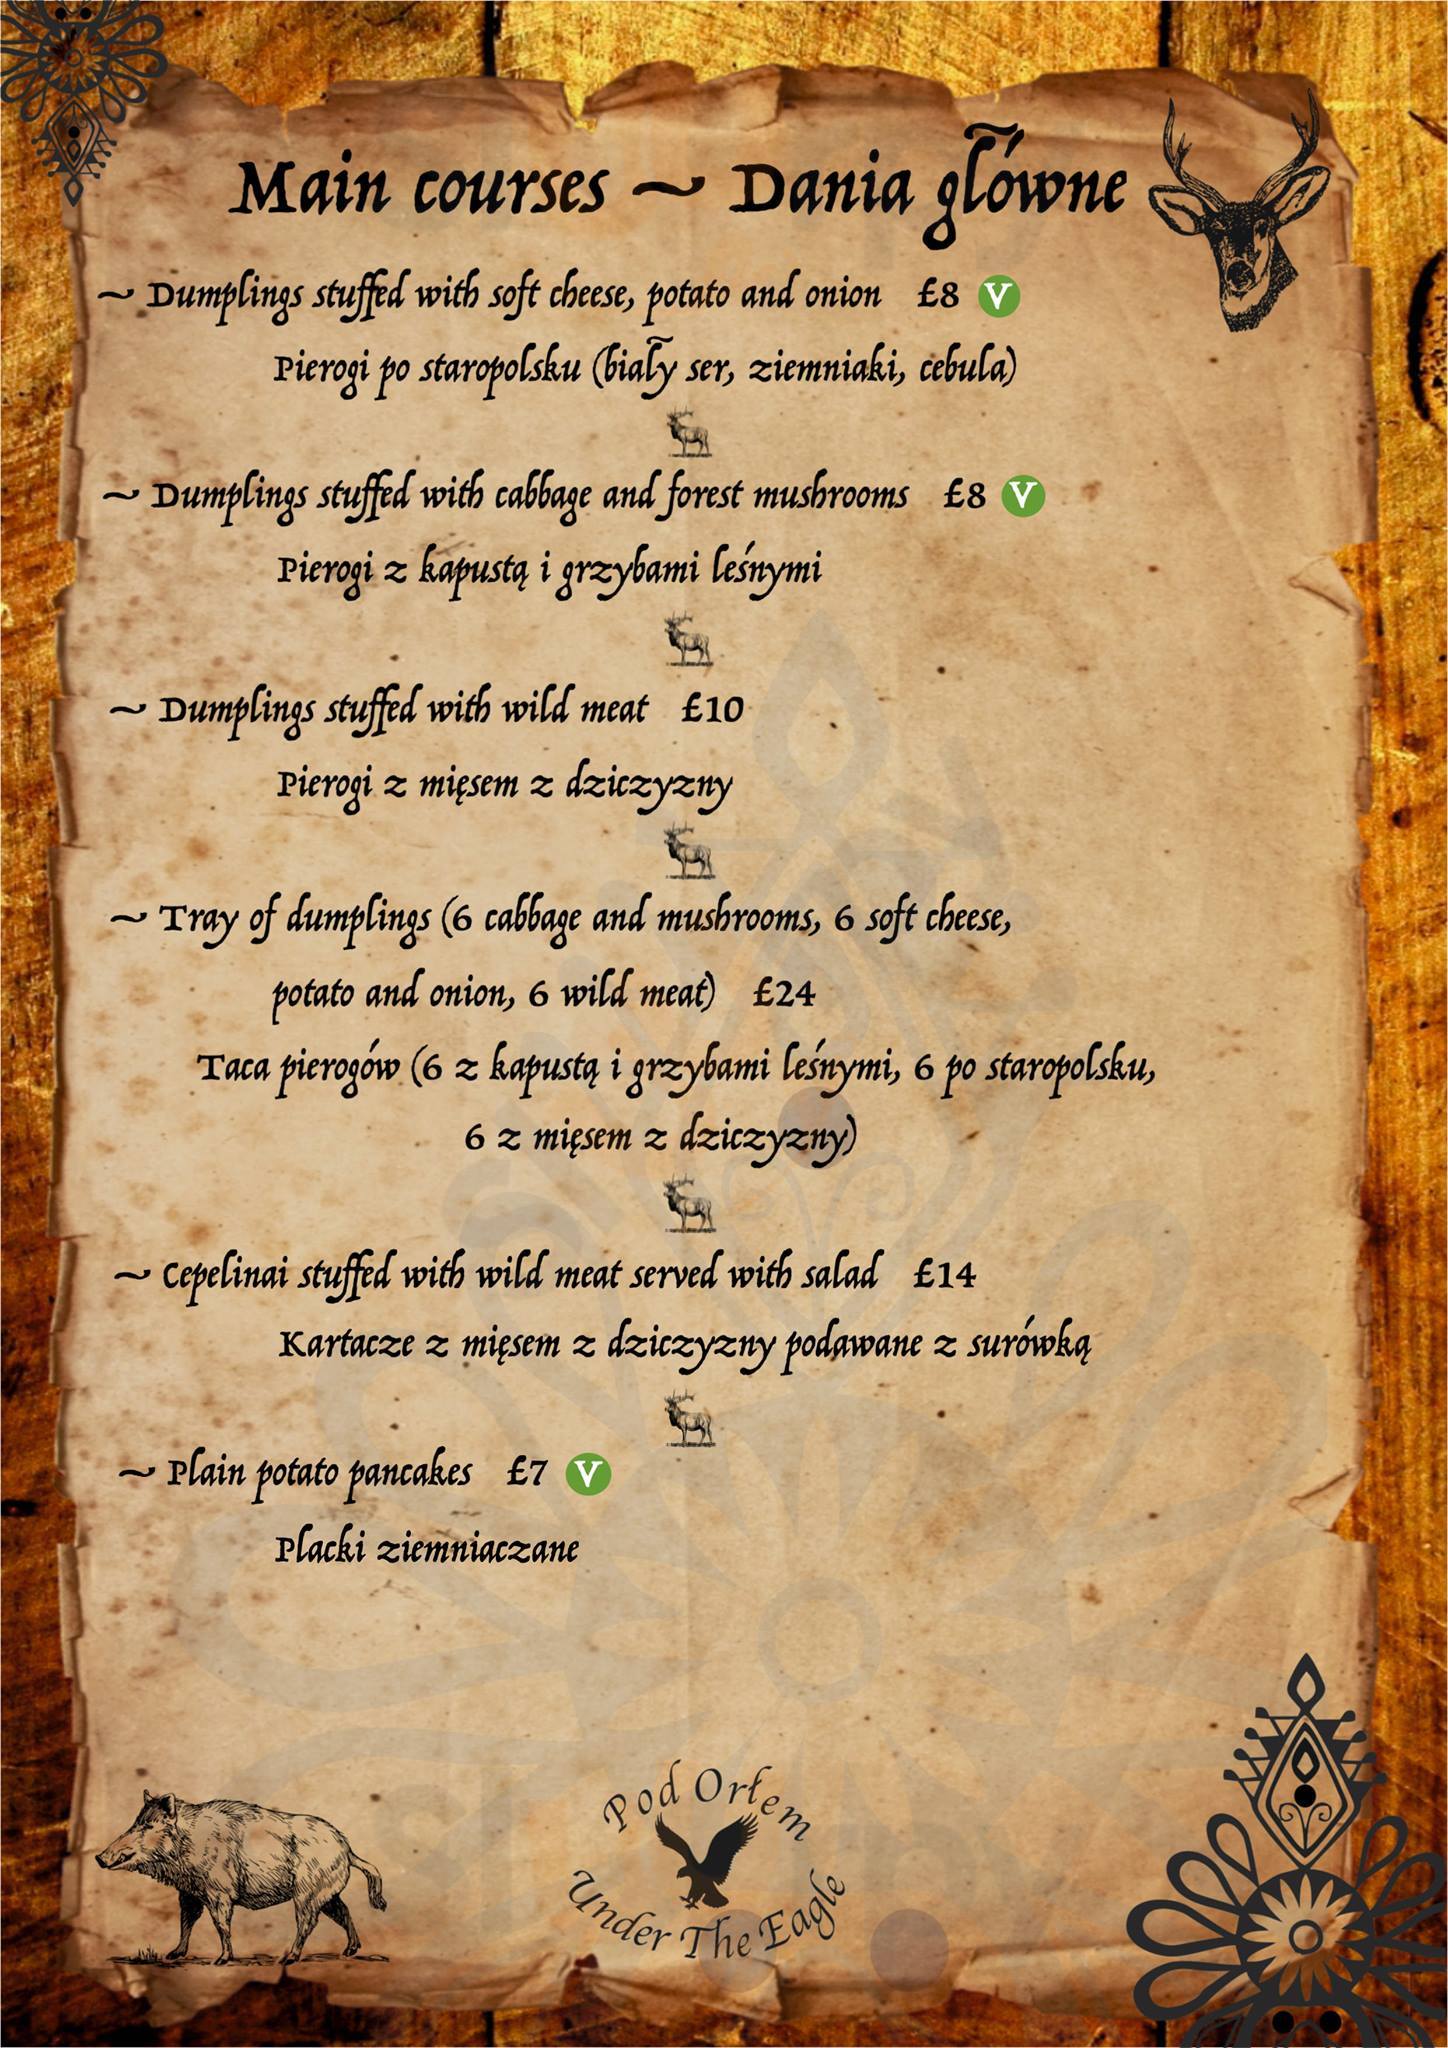 Main courses ~ Dania główne
~ Dumplings stuffed with soft cheese, potato and onion £8 V
Pierogi po staropolsku (biały ser, ziemniaki, cebula)
~ Dumplings stuffed with cabbage and forest mushrooms £8 V
Pierogi z kapustą i grzybami leśnymi
~ Dumplings stuffed with wild meat £10
Pierogi z mięsem z dziczyzny
~ Tray of dumplings (6 cabbage and mushrooms, 6 soft cheese,
potato and onion, 6 wild meat) £24
Taca pierogów (6 z kapustą i grzybami leśnymi, 6 po staropolsku,
6 z mięsem z dziczyzny)
~ Cepelinai stuffed with wild meat served with salad £14
Kartacze z mięsem z dziczyzny podawane z surówką
~ Plain potato pancakes £7 V
Placki ziemniaczane
Pod Orłem
Under The Eagle